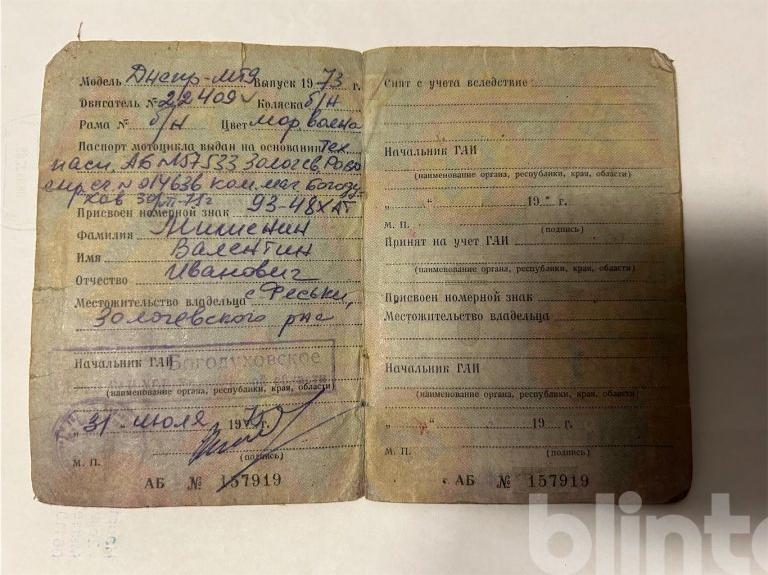 Модель Днепр-МТ9 Выпуск 1973 г.
Двигатель № 22409 Коляска б/н
Рама № б/н Цвет мор. волна
Паспорт мотоцикла выдан на основании тех.
пасп. АБ №157533 Золочев. РОВД
спр. сч. № 014636 ком. маг. Богоду-
хов
Присвоен номерной знак 93-48 ХАТ
Фамилия
Имя Валентин
Отчество Иванович
Местожительство владельца с Феськи,
Золочевского р-на
Начальник ГАИ Богодуховское
(наименование органа, республики, края, области)
„ 31 “ июля 197 г.
М. П. (подпись)
АБ № 157919
Снят с учета вследствие
Начальник ГАИ
(наименование органа, республики, края, области)
„ “ 19 г.
М. П. (подпись)
Принят на учет ГАИ
(наименование органа, республики, края, области)
Присвоен номерной знак
Местожительство владельца
Начальник ГАИ
(наименование органа, республики, края, области)
„ “ 19 г.
М. П. (подпись)
АБ № 157919
blinto